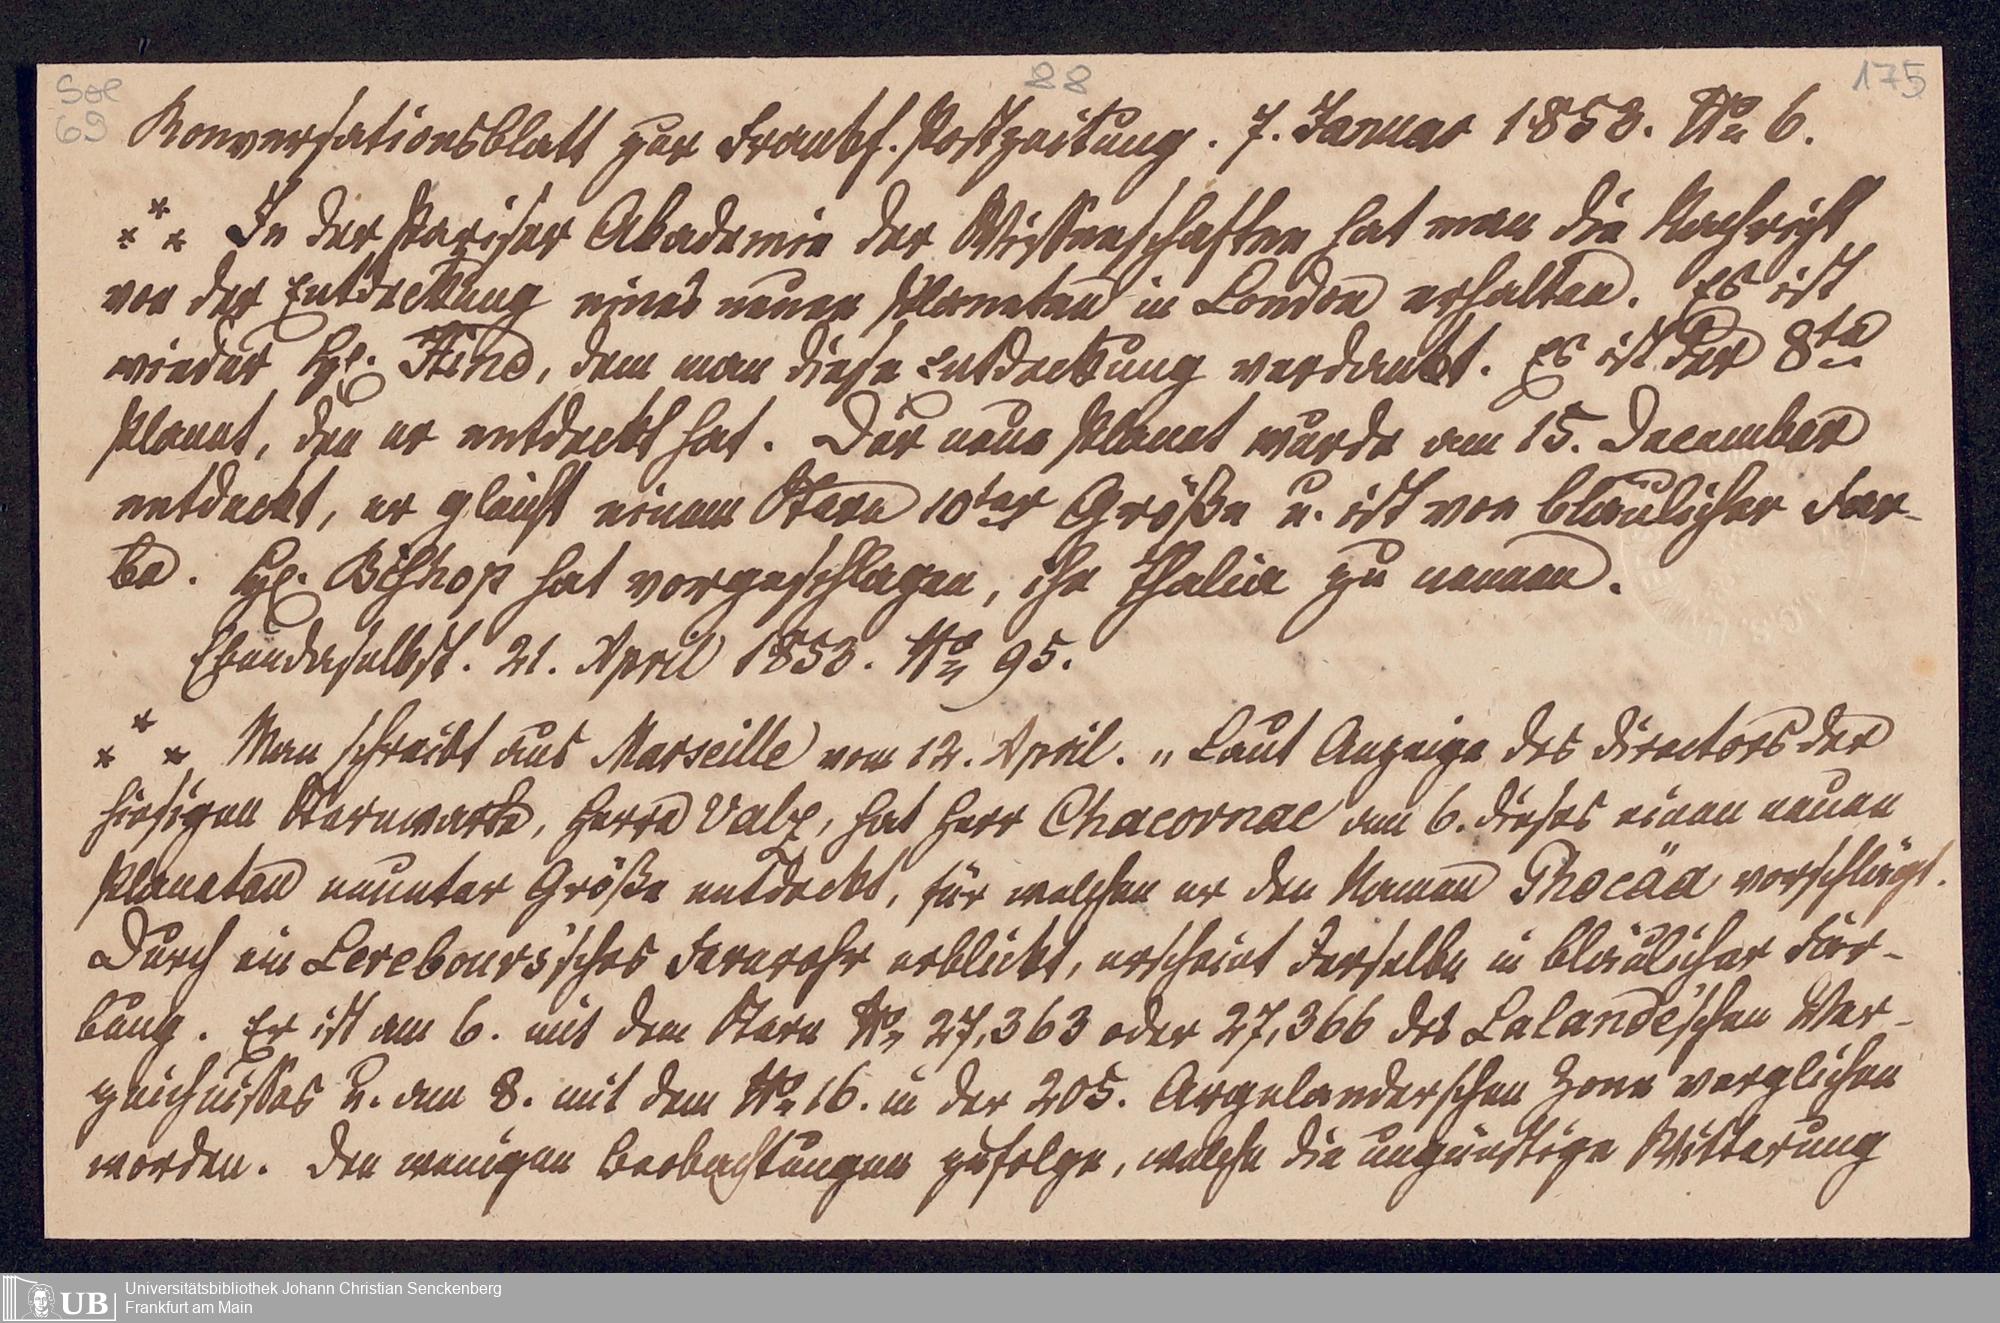 Sol 88 175
69
Konversationsblatt zur Frankf. Postzeitung. 7. Januar 1853. No 6.
*** In der Pariser Akademie der Wissenschaften hat man die Nachricht
von der Entdeckung eines neuen Planeten in London erhalten. Es ist
wieder Hr. Hind, dem man diese Entdeckung verdankt. Es ist der 8te
Planet, den er entdeckt hat. Der neue Planet wurde am 15. December
entdeckt, er gleicht einem Stern 10ter Größe u. ist von bläulicher Far-
be. Hr. Bishop hat vorgeschlagen, ihn Thalia zu nennen.
Ebendaselbst. 21. April 1853. No 95.
*** Man schreibt aus Marseille vom 12. April. „Laut Anzeige des Directors der
hiesigen Sternwarte, Herrn Valz, hat Herr Chacornac am 6. dieses einen neuen
Planeten neunter Größe entdeckt, für welchen er den Namen Phocäa vorschlägt.
Durch ein Lerebours'sches Fernrohr erblickt, erscheint derselbe in bläulicher Fär-
bung. Er ist am 6. mit dem Stern No 27,363 oder 27,366 des Lalande'schen Ver-
zeichnisses u. am 8. mit dem No 16. in der 205. Argelanderschen Zone verglichen
worden. Den wenigen Beobachtungen zufolge, welche die ungünstige Witterung
UB Universitätsbibliothek Johann Christian Senckenberg
Frankfurt am Main